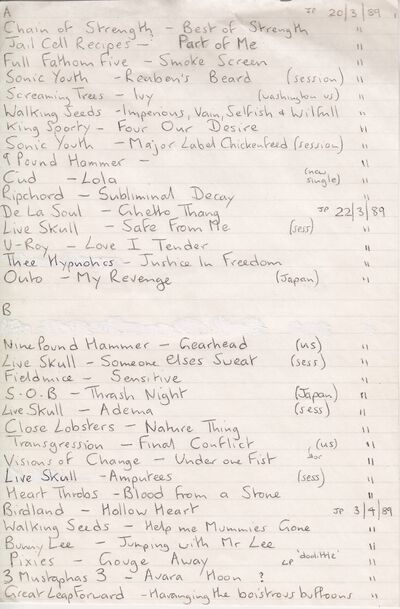 A JP 20/3/89
Chain of Strength - Best of Strength "
Jail Cell Recipes - Part of Me "
Full Fathom Five - Smoke Screen "
Sonic Youth - Reuben's Beard (session) "
Screaming Trees - Ivy (Washington US) "
Walking Seeds - Imperious, Vain, Selfish & Wilfull "
King Sporty - Four Our Desire "
Sonic Youth - Major Label Chickenfeed (session) "
9 Pound Hammer - "
Cud - Lola (new single) "
Ripchord - Subliminal Decay "
De La Soul - Ghetto Thang JP 22/3/89
Live Skull - Safe From Me (sess) "
U-Roy - Love I Tender "
Thee Hypnotics - Justice In Freedom "
Outo - My Revenge (Japan) "
B
Nine Pound Hammer - Gearhead (US) "
Live Skull - Someone elses Sweat (sess) "
Fieldmice - Sensitive "
S.O.B - Thrash Night (Japan) "
Live Skull - Adema (sess) "
Close Lobsters - Nature Thing "
Transgression - Final Conflict (us) "
Visions of Change - Under one Fist "
Live Skull - Amputees (sess) "
Heart Throbs - Blood from a Stone "
Birdland - Hollow Heart JP 3/4/89
Walking Seeds - Help me Mummies Gone "
Bunny Lee - Jumping with Mr Lee "
Pixies - Gouge Away LP 'doolittle' "
3 Mustaphas 3 - Avara Hoon ? "
Great Leap Forward - Haranging the boistrous buffoons "